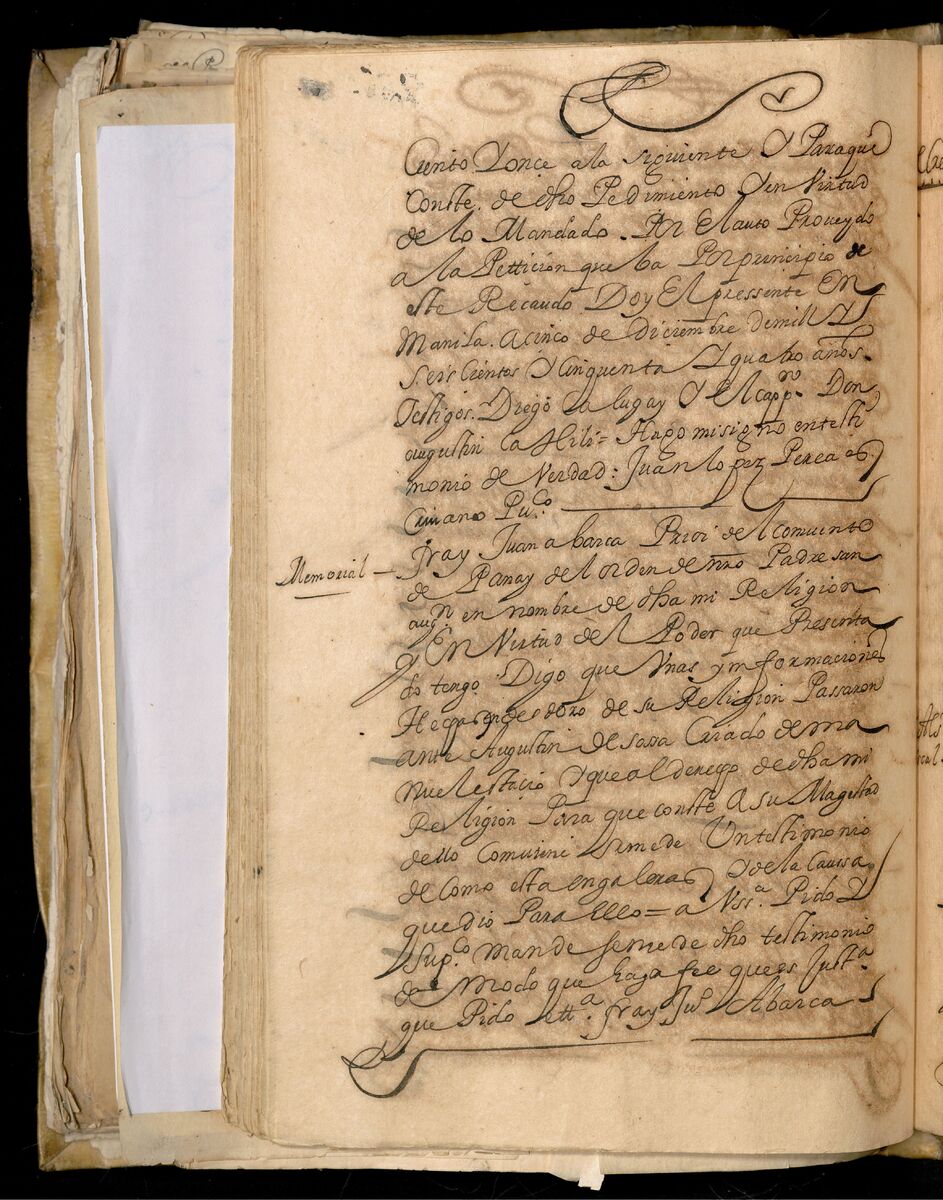 Ciento Y once a la siguiente Y Paraque
Conste. de dho Pedimiento Y en Virtud
de lo Mandado. Por El auto Proveydo
a la Petticion que ba Por principio de
este Recaudo Doy El pressente En
Manila. a cinco de diciembre de mill Y
Seis Cientos Y Cinquenta Y quatro años.
Testigos. Diego Calugay Y El capp.n Don
augustin
monio de Verdad: Juan lopez Perea es
Criuano Pu.co
Memorial
fray Juan abarca Prior del conuento
de Panay del orden de nro Padre san
aug.n en nombre de dha mi Religion
Y En Virtud del Poder que Presenta
do tengo. Digo que Vnas ynformaciones
de su Religion Passaron
ante Augustin de sossa Criado de ma
nuel estacio Y que al derecho de dha mi
Religion Para que conste A su Magestad
dello Comuiene se me de Un testimonio
de Como esta en galeras Y de la Causa
que dio Para ello = a Vss.a Pido Y
Sup.co Mande se me de dho testimonio
de Modo que haga fee que es Just.a
que Pido ett.a fray Ju.o Abarca